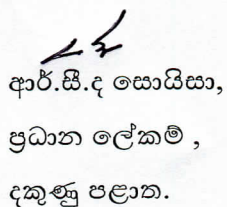 ආර්.සී.ද සොයිසා,
ප්‍රධාන ලේකම් ,
දකුණු පළාත.